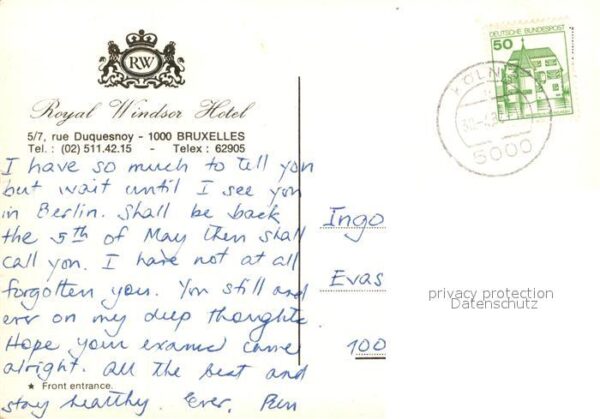 RW
Royal Windsor Hotel
5/7, rue Duquesnoy - 1000 BRUXELLES
Tel. : (02) 511.42.15 - Telex : 62905
I have so much to tell you
but wait until I see you
in Berlin. Shall be back
the 5th of May then shall
call you. I have not at all
forgotten you. You still and
ever on my deep thoughts
Hope your exams came
alright. All the best and
★ Front entrance.
stay healthy. Ever,
DEUTSCHE BUNDESPOST
50
KÖLN
5000
Ingo
Evas
100
privacy protection
Datenschutz